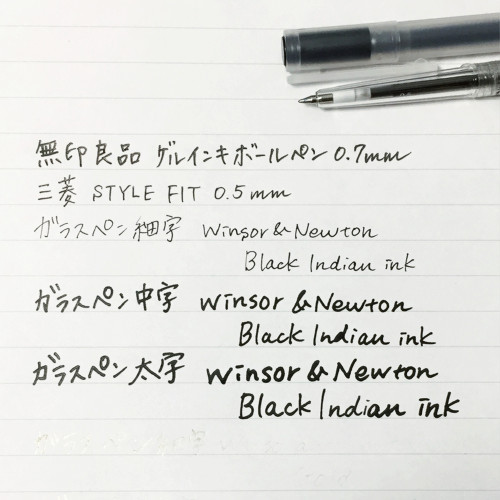 無印良品 ゲルインキボールペン 0.7mm
三菱 STYLE FIT 0.5mm
ガラスペン細字 Winsor & Newton
Black Indian ink
ガラスペン中字 Winsor & Newton
Black Indian ink
ガラスペン太字 Winsor & Newton
Black Indian ink